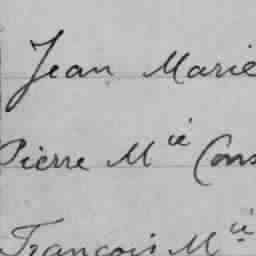 Jean Marie
Pierre Mie Cons
François Mie